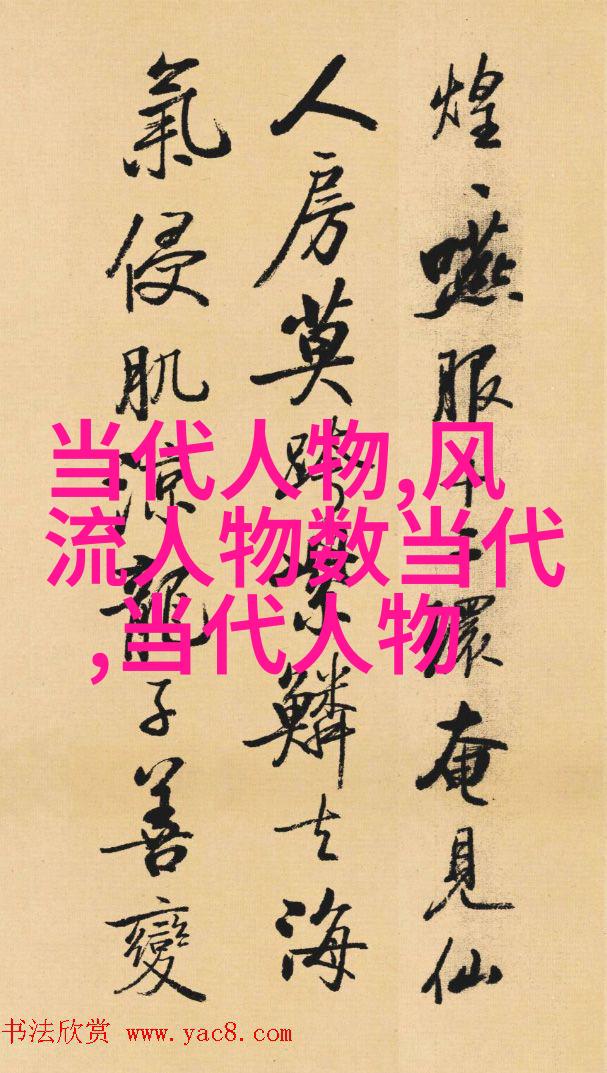 煌、嚥服十二環奄見仙
人房莫跨紫鱗去海
氣侵肌涼龍子善變
当代人物,风
流人物数当代
,当代人物
书法欣赏 www.yac8.com